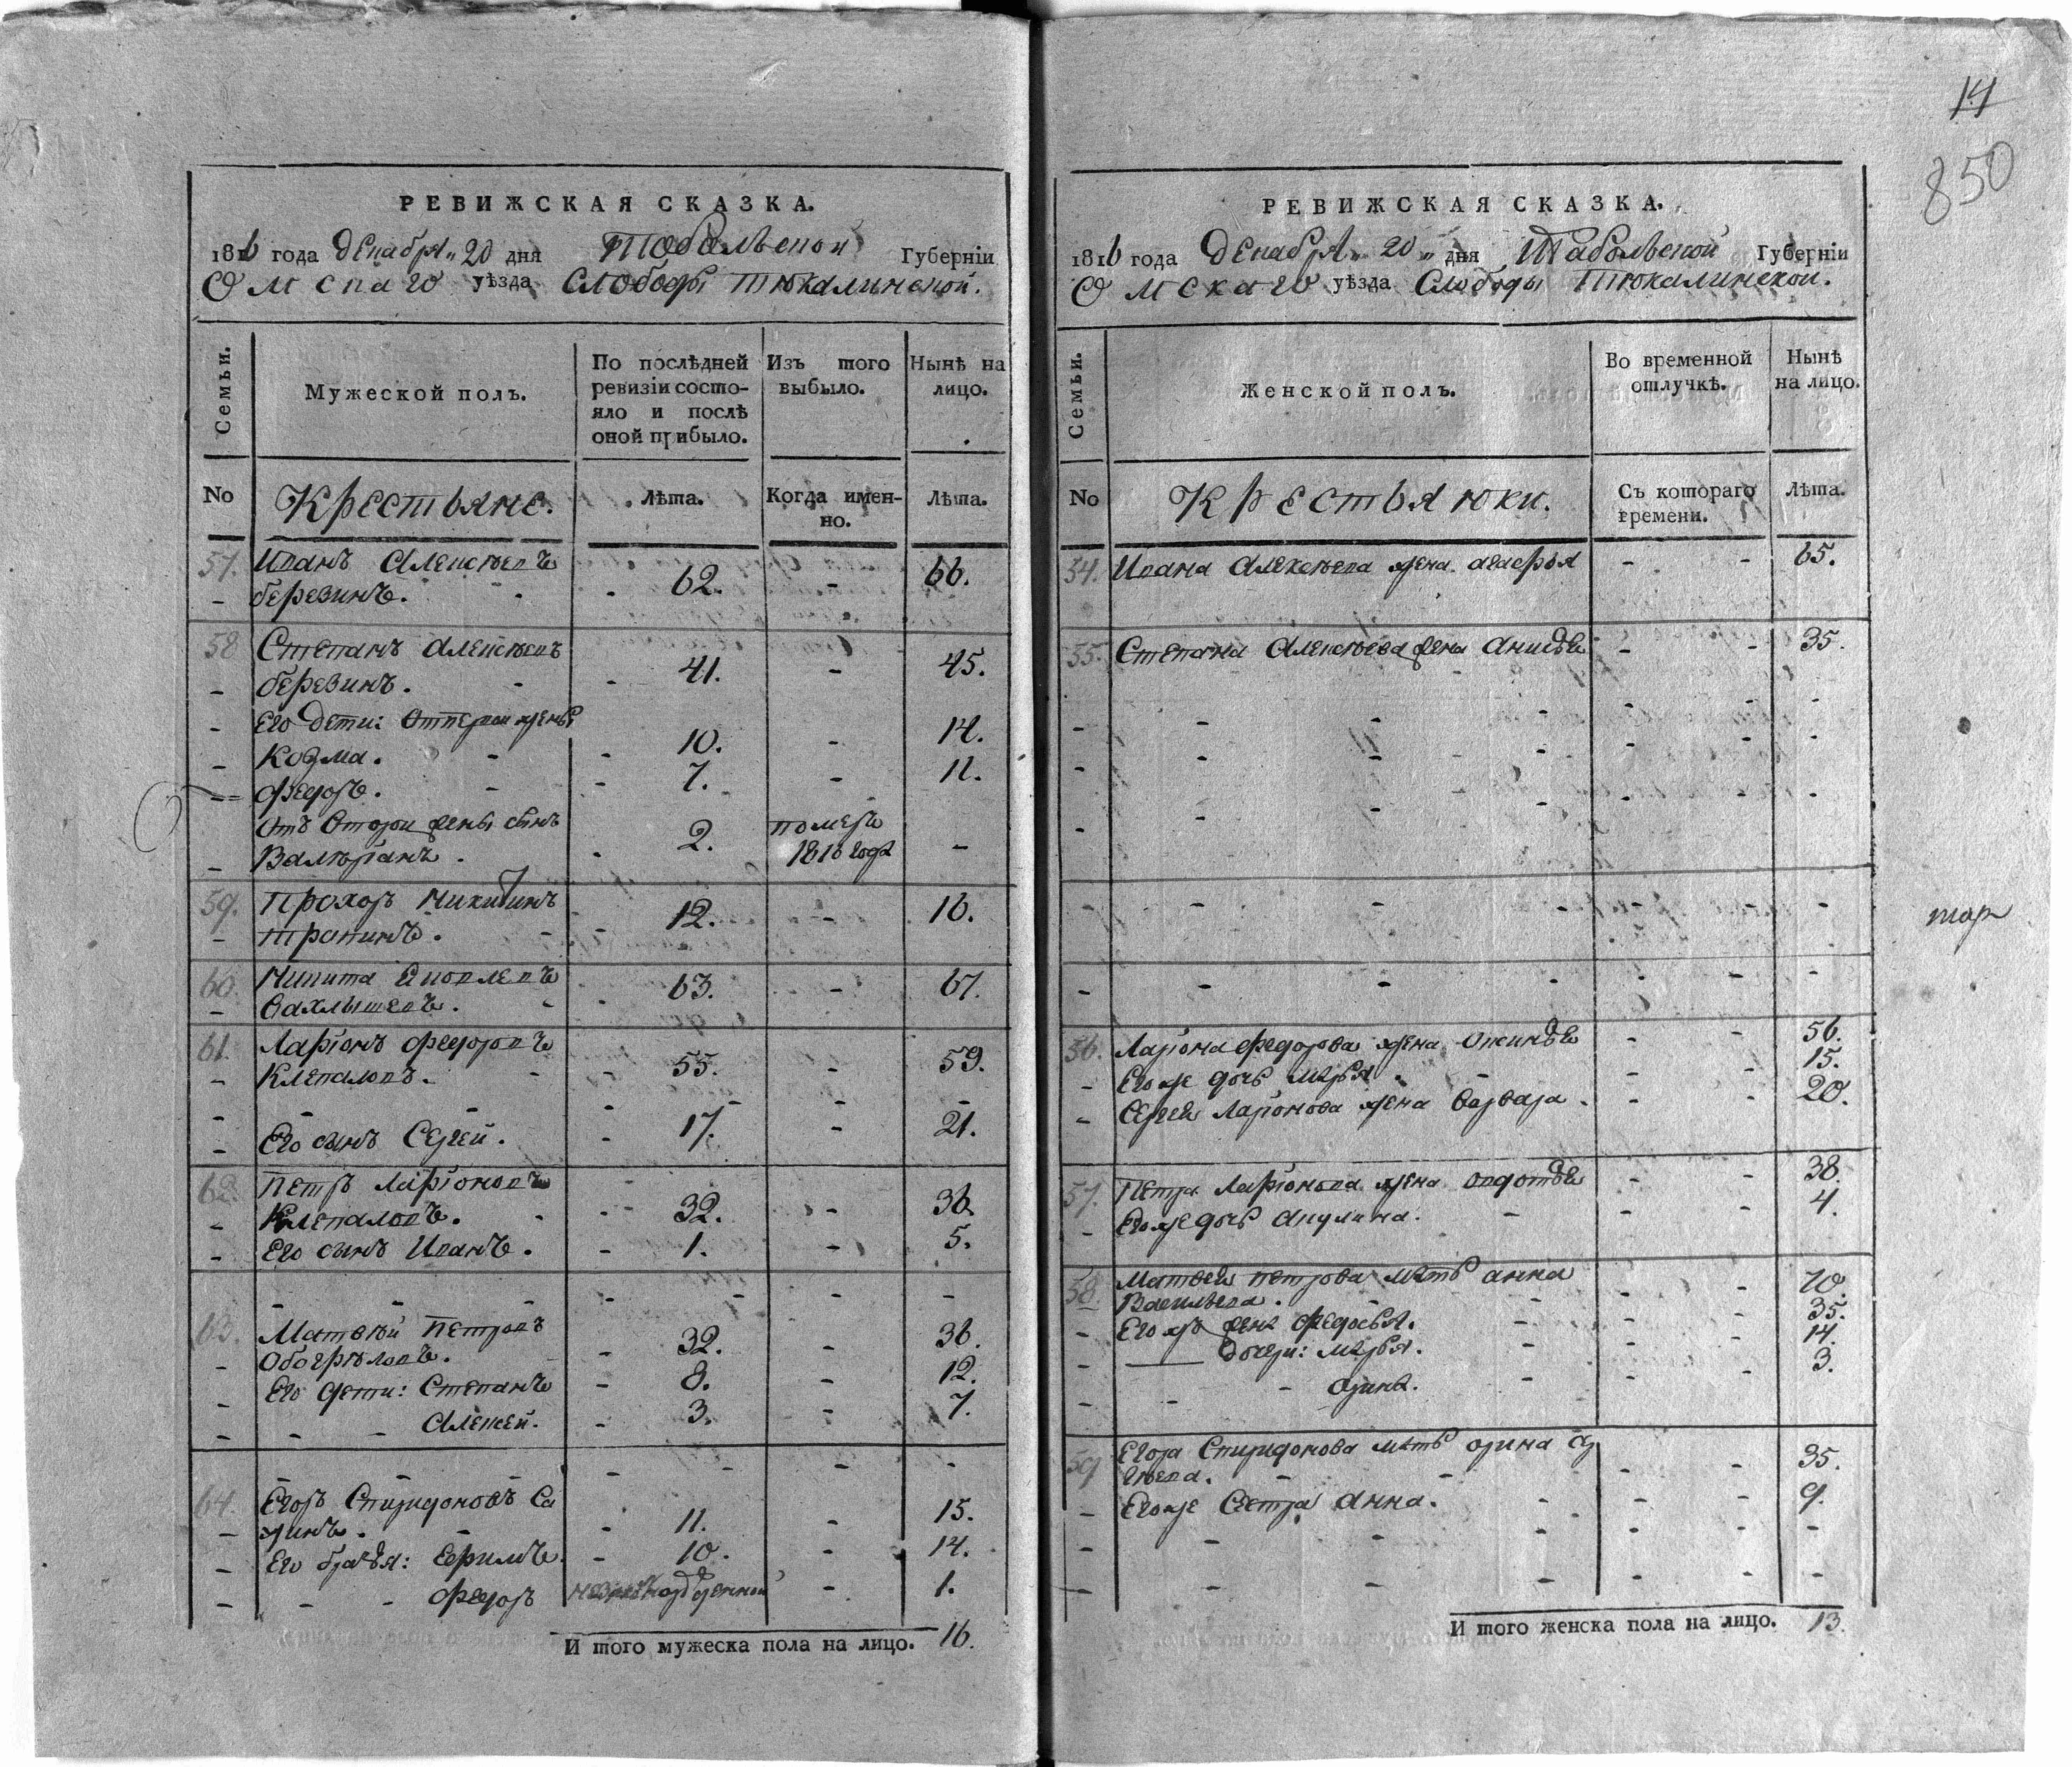 14
850
РЕВИЖСКАЯ СКАЗКА.
1816 года Декабря 20 дня Тобольской Губерніи
Омскаго уѣзда Слободы Тюкалинской.
Семьи.
Мужеской полъ.
По послѣдней ревизіи состояло и послѣ оной прибыло.
Изъ того выбыло.
Нынѣ на лицо.
No
Крестьяне.
Лѣта.
Когда именно.
Лѣта.
57. Иванъ Алексѣевъ
березинъ. 62. - 66.
58 Степанъ Алексѣевъ
березинъ. 41. - 45.
Его дети: Отпервой жены
Козма. 10. - 14.
Федоръ. 7. - 11.
Отъ Второй жены сынъ
Валѣрiанъ. 2. померъ 1816 года -
59. Прохоръ Никитинъ
тропинъ. 12. - 16.
60. Никита Яковлевъ
Вахлышевъ. 63. - 67.
61. Ларiонъ Федоровъ
Клепаловъ. 55. - 59.
Его сынъ Сергей. 17. - 21.
62. Петръ Ларiоновъ
Клепаловъ. 32. - 36.
Его сынъ Иванъ. 1. - 5.
63. Матвѣй Петровъ
Обогрѣловъ. 32. - 36.
Его дети: Степанъ 8. - 12.
Алексей. 3. - 7.
64. Егоръ Спиридоновъ Са
жинъ. 11. - 15.
Его братья: Ефимъ. 10. - 14.
Федоръ - 1.
И того мужеска пола на лицо. 16.
РЕВИЖСКАЯ СКАЗКА.
1816 года Декабря 20 дня Табольской Губерніи
Омскаго уѣзда Слободы Тюкалинской.
Семьи.
Женской полъ.
Во временной отлучкѣ.
Нынѣ на лицо.
No
Крестьянки.
Съ котораго времени.
Лѣта.
54. Ивана Алексѣева жена агафья - - 65.
55. Степана Алексѣева жена - - 35.
56. Ларiона Федорова жена - - 56.
Егоже дочь марья - - 15.
Сергея Ларiонова жена Варвара - - 20.
57. Петра Ларiонова жена - - 38.
Егоже дочь Акулина. - - 4.
58. Матвея петрова мать анна
Васильева. - - 70.
Егожъ жена Федосья. - - 35.
дочери: марья. - - 14.
Орина. - - 3.
59 Егора Спиридонова мать орина Се
ргѣева. - - 35.
Егоже Сестра Анна. - - 9.
И того женска пола на лицо. 13.